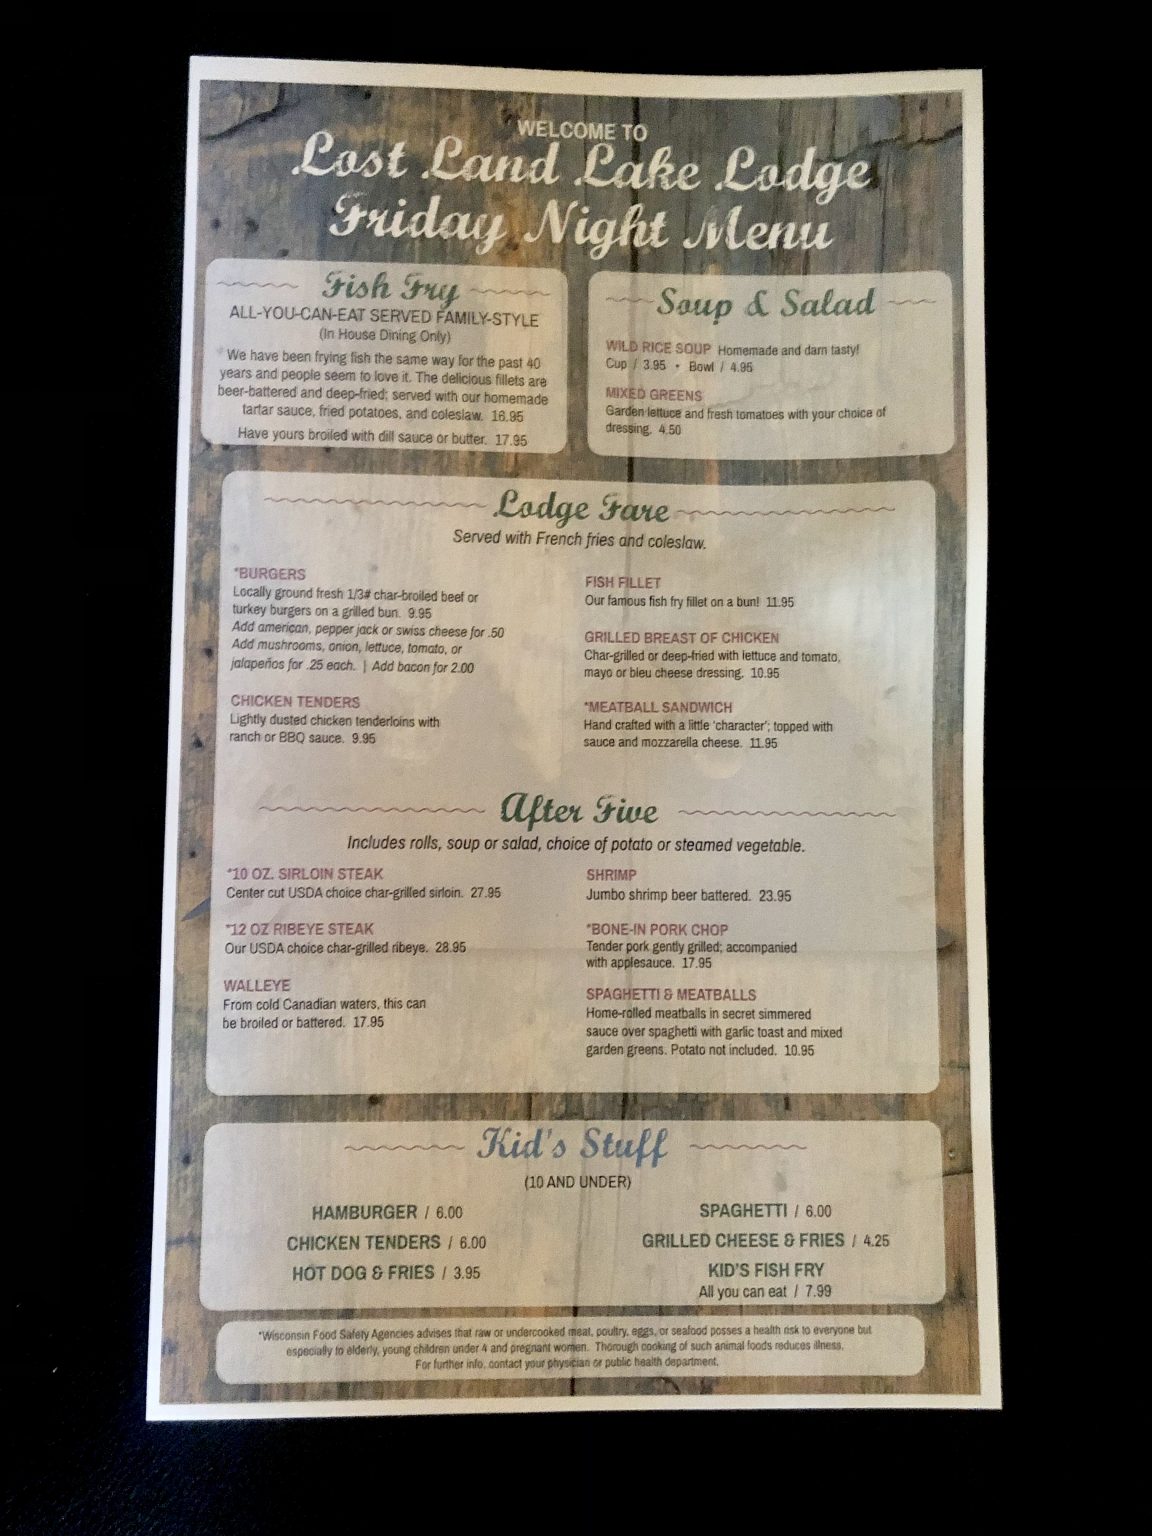 WELCOME TO
Lost Land Lake Lodge
Friday Night Menu
Fish Fry
ALL-YOU-CAN-EAT SERVED FAMILY-STYLE
(In House Dining Only)
We have been frying fish the same way for the past 40
years and people seem to love it. The delicious fillets are
beer-battered and deep-fried; served with our homemade
tartar sauce, fried potatoes, and coleslaw. 16.95
Have yours broiled with dill sauce or butter. 17.95
Soup & Salad
WILD RICE SOUP Homemade and darn tasty!
Cup / 3.95 • Bowl / 4.95
MIXED GREENS
Garden lettuce and fresh tomatoes with your choice of
dressing. 4.50
Lodge Fare
Served with French fries and coleslaw.
*BURGERS
Locally ground fresh 1/3# char-broiled beef or
turkey burgers on a grilled bun. 9.95
Add american, pepper jack or swiss cheese for .50
Add mushrooms, onion, lettuce, tomato, or
jalapeños for .25 each. | Add bacon for 2.00
CHICKEN TENDERS
Lightly dusted chicken tenderloins with
ranch or BBQ sauce. 9.95
FISH FILLET
Our famous fish fry fillet on a bun! 11.95
GRILLED BREAST OF CHICKEN
Char-grilled or deep-fried with lettuce and tomato,
mayo or bleu cheese dressing. 10.95
*MEATBALL SANDWICH
Hand crafted with a little 'character'; topped with
sauce and mozzarella cheese. 11.95
After Five
Includes rolls, soup or salad, choice of potato or steamed vegetable.
*10 OZ. SIRLOIN STEAK
Center cut USDA choice char-grilled sirloin. 27.95
*12 OZ RIBEYE STEAK
Our USDA choice char-grilled ribeye. 28.95
WALLEYE
From cold Canadian waters, this can
be broiled or battered. 17.95
SHRIMP
Jumbo shrimp beer battered. 23.95
*BONE-IN PORK CHOP
Tender pork gently grilled; accompanied
with applesauce. 17.95
SPAGHETTI & MEATBALLS
Home-rolled meatballs in secret simmered
sauce over spaghetti with garlic toast and mixed
garden greens. Potato not included. 10.95
Kid's Stuff
(10 AND UNDER)
HAMBURGER / 6.00
CHICKEN TENDERS / 6.00
HOT DOG & FRIES / 3.95
SPAGHETTI / 6.00
GRILLED CHEESE & FRIES / 4.25
KID'S FISH FRY
All you can eat / 7.99
*Wisconsin Food Safety Agencies advises that raw or undercooked meat, poultry, eggs, or seafood posses a health risk to everyone but
especially to elderly, young children under 4 and pregnant women. Thorough cooking of such animal foods reduces illness.
For further info, contact your physician or public health department.